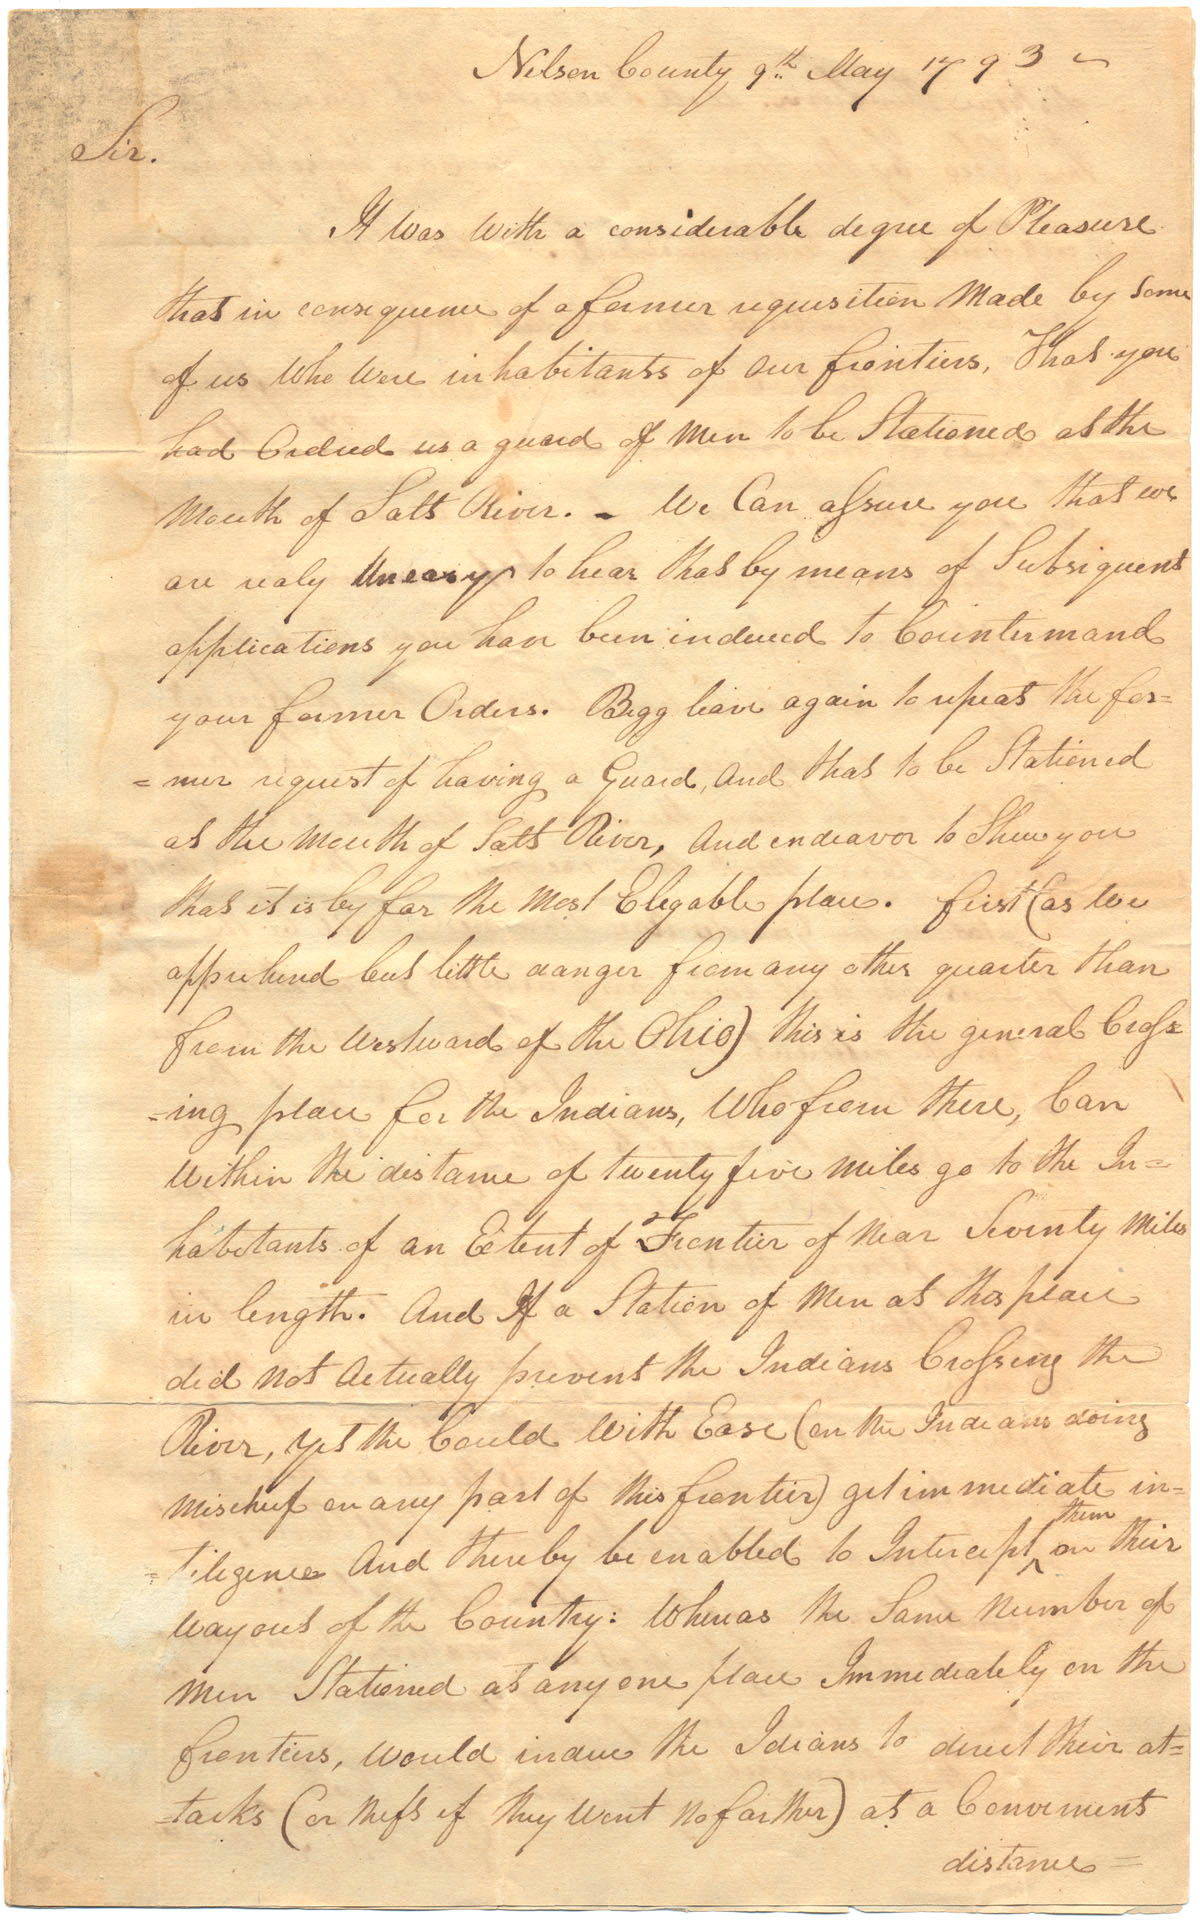 Nelson County 9th May 1793
Sir.
It was with a considerable degree of Pleasure
that in consequence of a former requisition Made by some
of us who were inhabitants of our frontiers, That you
had Ordred us a guard of Men to be Stationed at the
Mouth of Salt River. - We Can assure you that we
are realy Uneasy to hear that by means of Subsiquent
applications you have been induced to Countermand
your former Orders. Begg leave again to repeat the for=
=mer request of having a Guard, And that to be Stationed
at the Mouth of Salt River, And endeavor to Shew you
that it is by far the Most Elegable place. first (as we
apprehend but little danger from any other quarter than
from the Westward of the Ohio) this is the general Cross=
-ing place for the Indians, Who from there, Can
Within the distance of twenty five Miles go to the In=
habitants of an Extent of Frontier of Near Seventy Miles
in length. And If a Station of Men at this place
did Not Actually prevent the Indians Crossing the
River, Yet the Could With Ease (on the Indians doing
Mischief on any part of this frontier) get immediate in=
=teligence And thereby be enabled to Intercept them on their
way out of the Country: Whereas the Same Number of
Men Stationed at any one place Immediately on the
frontiers, Would induce the Idians to direct their at=
=tacks (or theft if they Went No farther) at a Convenient
distance=